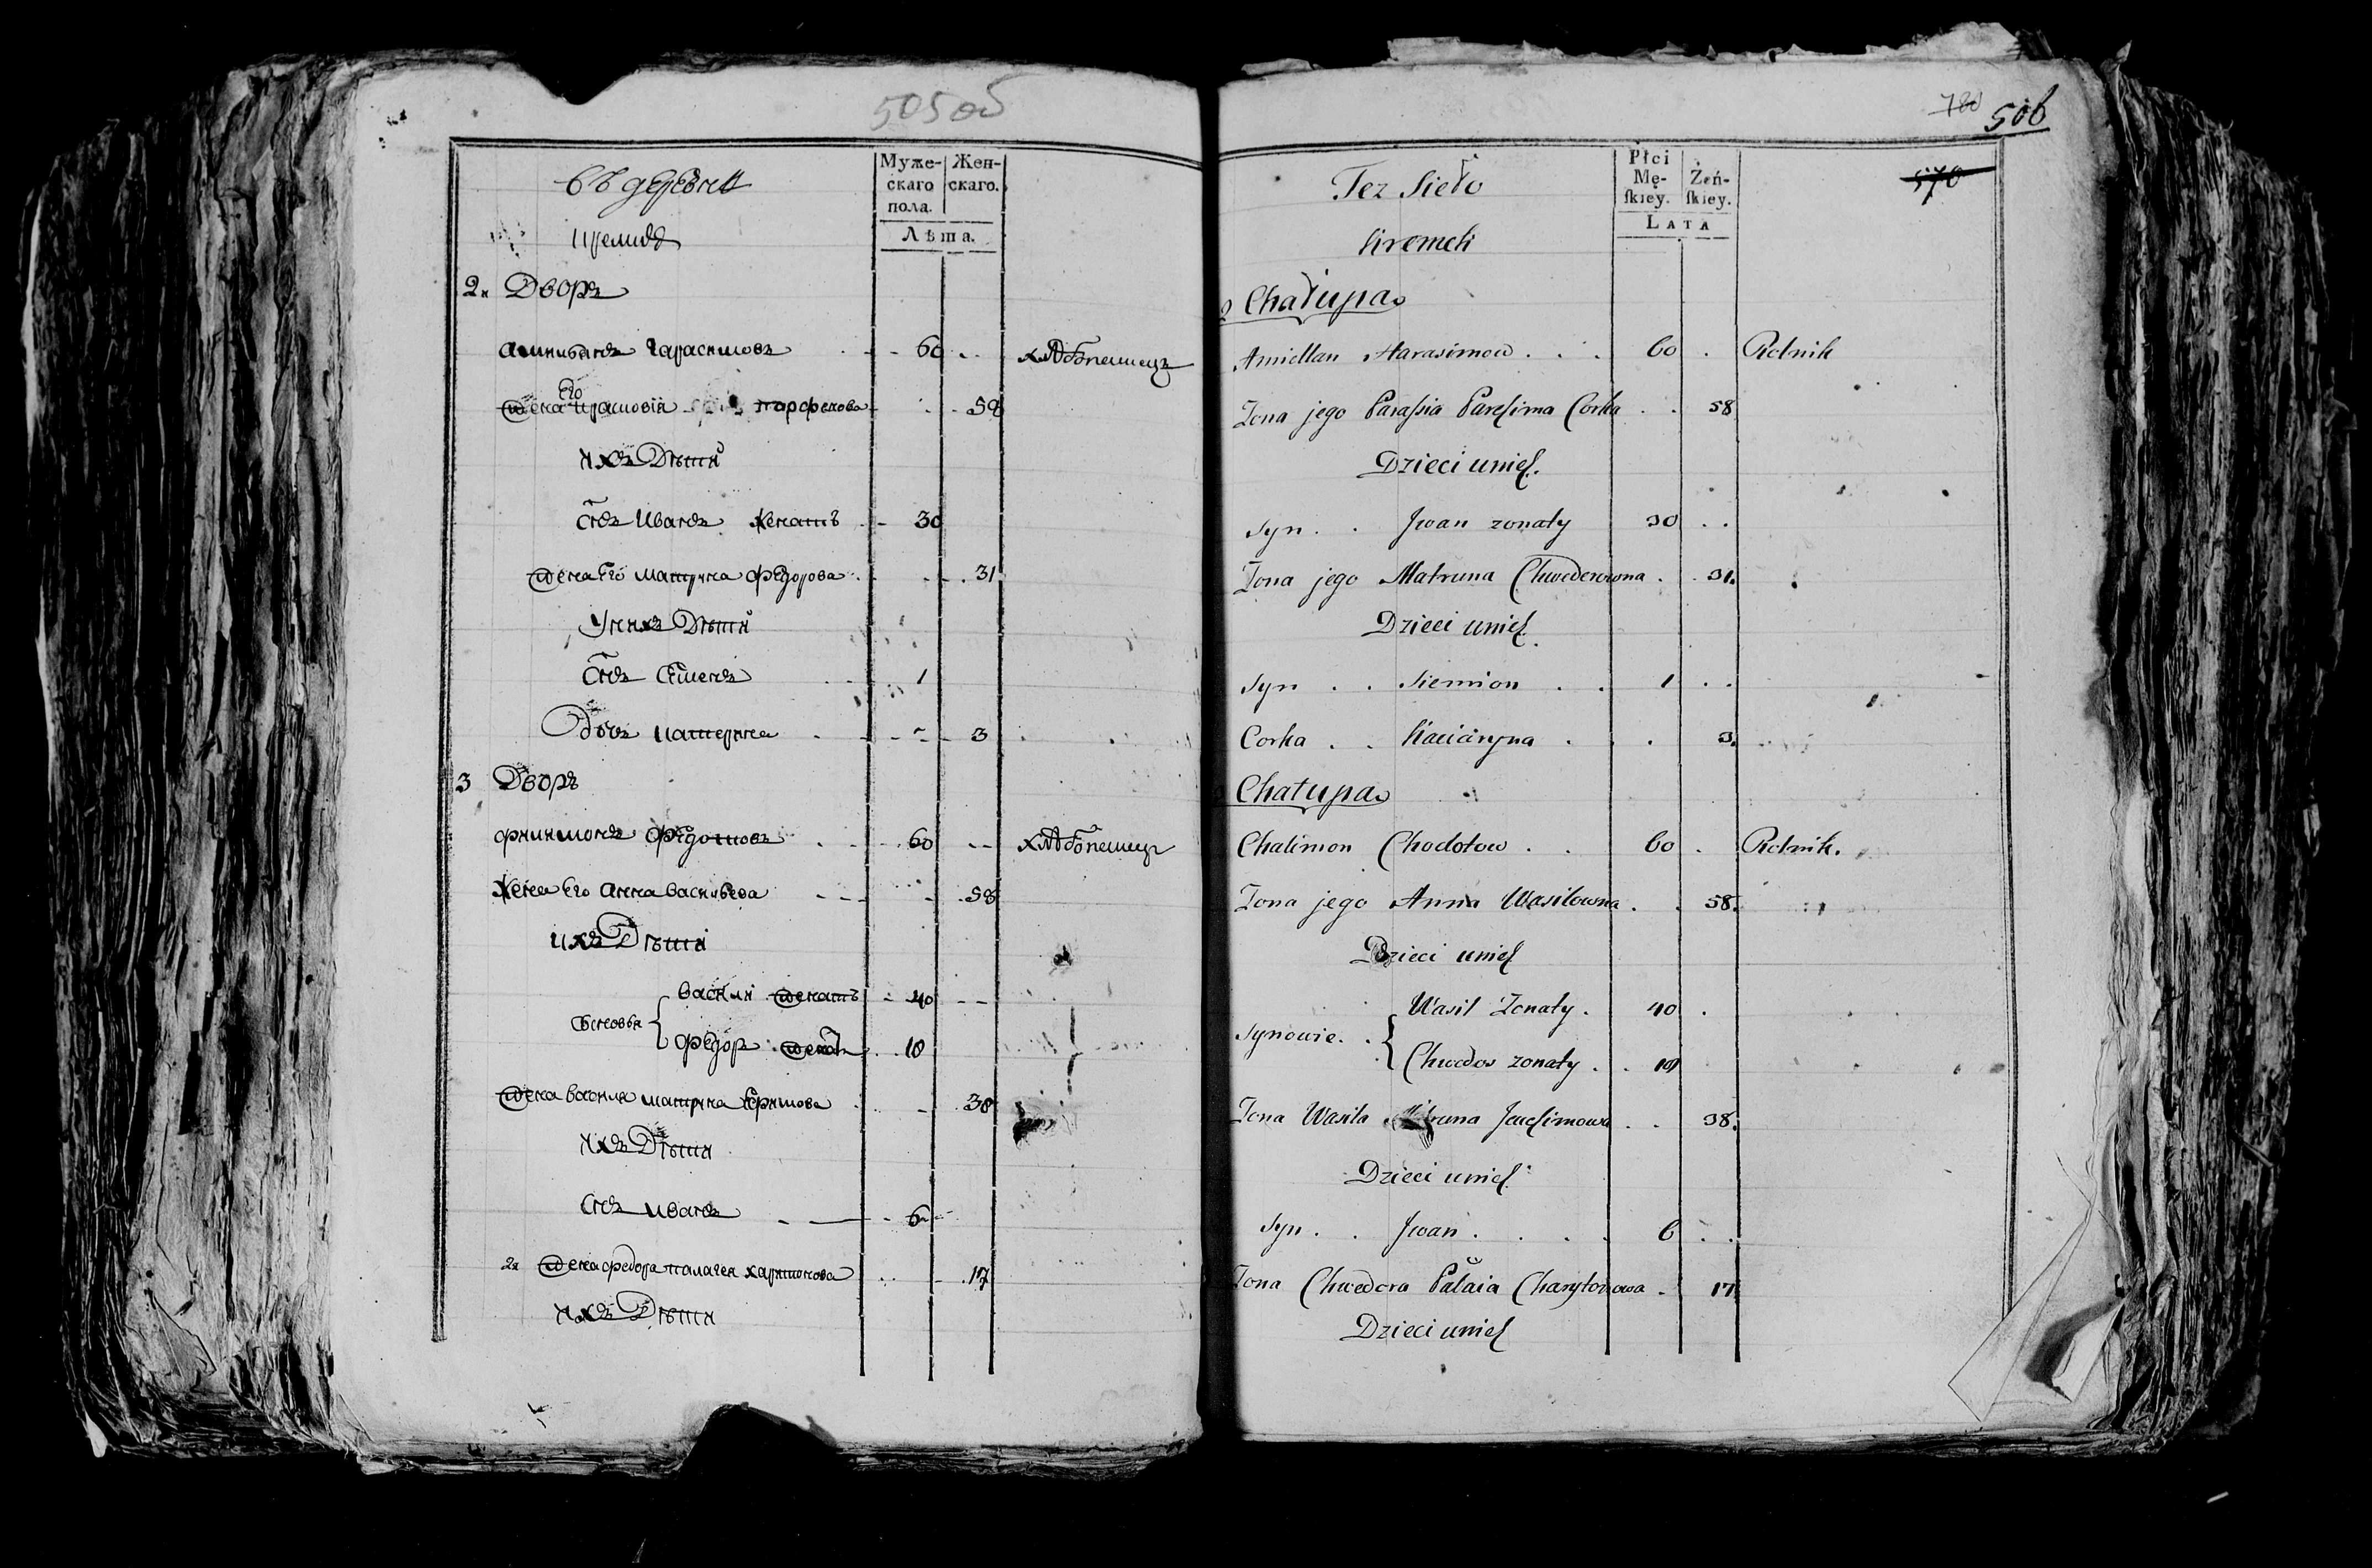 505 об
въ деревни
Муже-
скаго
пола.
Жен-
скаго.
Лѣта.
2я Дворъ
Гарасимовъ 60 хлѣбопашецъ
жена его 58
ихъ дѣти
снъ Иванъ женатъ 30
жена его Матруна Федорова 31
у нихъ дѣти
снъ Семенъ 1
дочь Катерина 3
3 Дворъ
Филимонъ Федотовъ 60 хлѣбопашецъ
жена его Анна Васильева 58
ихъ дѣти
сыновья
Василій женатъ 40
Федоръ женатъ 18
жена Василія Матруна 38
ихъ дѣти
снъ Иванъ 6
2я жена Федора Палагея Харитонова 17
ихъ дѣти
780 506
570
Tez Sieło
Kremeli
Płci
Mę-
skiey.
Żeń-
skiey.
Lata
2 Chałupa
Harasimow 60 Rolnik
Zona jego Parassia Corka 58
Dzieci unich.
Syn Jwan zonaty 30
Zona jego Matruna Chwederowna 31.
Dzieci unich.
Syn Siemion 1
Corka Kaciaryna 3.
Chałupa
Chalimon Chodotow 60 Rolnik.
Zona jego Anna Wasilowna 58.
Dzieci unich
Synowie
Wasil Zonaty. 40
Chwedor zonaty 18
Zona Wasila 38.
Dzieci unich
Syn Jwan 6
Zona Chwedora Pałaia Charytonowa 17
Dzieci unich